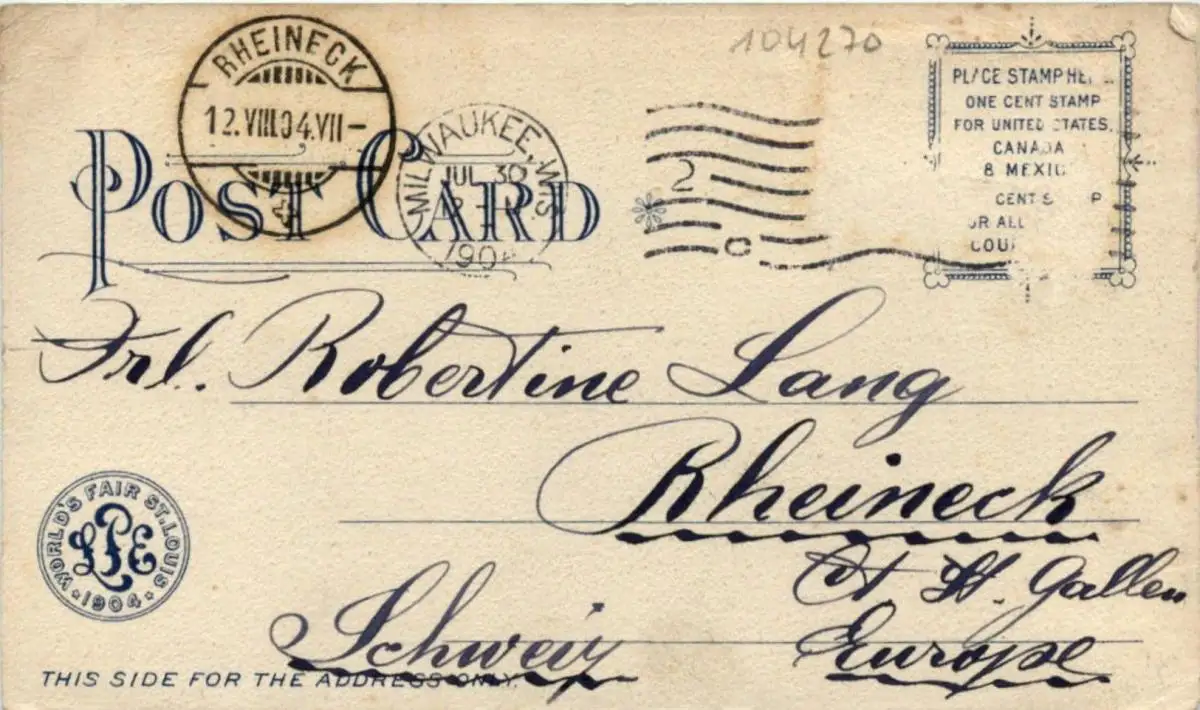 104270
RHEINECK
12.VIII.04.VII–
POST CARD
MILWAUKEE, WIS
JUL 30
1904
2
C
PLACE STAMP HE
ONE CENT STAMP
FOR UNITED STATES,
CANADA
& MEXIC
CENT S P
OR ALL
COU
Frl. Robertine Lang
Rheineck
Ct St. Gallen
Schweiz Europe
WORLD'S FAIR ST. LOUIS
LPE
1904
THIS SIDE FOR THE ADDRESS ONLY.